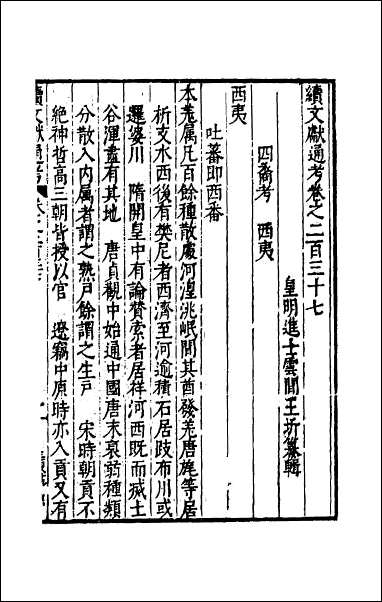 續文獻通考卷之二百三十七
皇明進士雲間王圻纂輯
四裔考　西夷
西夷
吐蕃即西番
本羗属凡百餘種散處河湟洮岷間其酋發羗唐旄等居
析支水西後有樊尼者西濟至河逾積石居跂布川或
邏娑川　隋開皇中有論贊索者居祥河西既而㓕土
谷渾盡有其地　唐貞觀中始通中國唐末衰弱種類
分散入内属者謂之熟戶餘謂之生戸　宋時朝貢不
絶神哲高三朝皆授以官　遼竊中原時亦入貢又有
續文獻通考